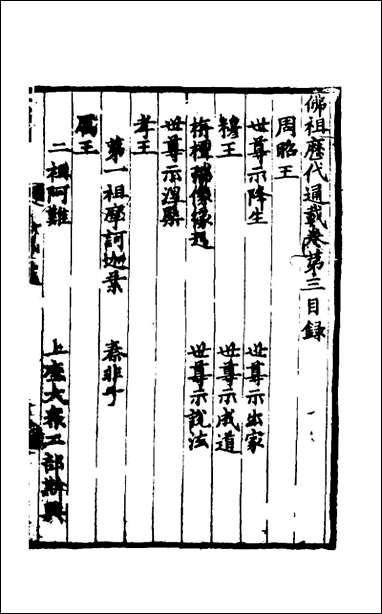 佛祖歷代通載卷第三目録
周昭王
世尊示降生　世尊示出家
穆王　世尊示成道
栴檀瑞像緣起　世尊示說法
世尊示涅槃
孝王
第一祖摩訶迦葉　秦非子
厲王
二祖阿難　上座大衆二部摽興